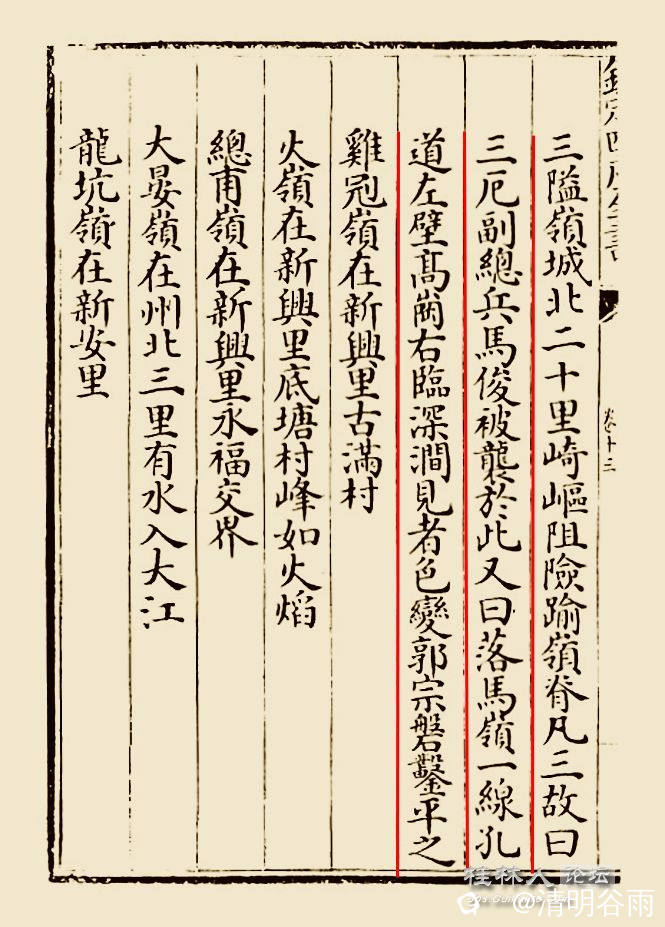 三隘嶺城北二十里崎嶇阻險踰嶺脊凡三故曰
三厄副總兵馬俊被襲於此又曰落馬嶺一線孔
道左壁髙崗右臨深澗見者色變郭宗磐鑿平之
雞冠嶺在新興里古滿村
火嶺在新興里底塘村峰如火焰
總甫嶺在新興里永福交界
大晏嶺在州北三里有水入大江
龍坑嶺在新安里
卷十三
桂林人论坛
@清明谷雨